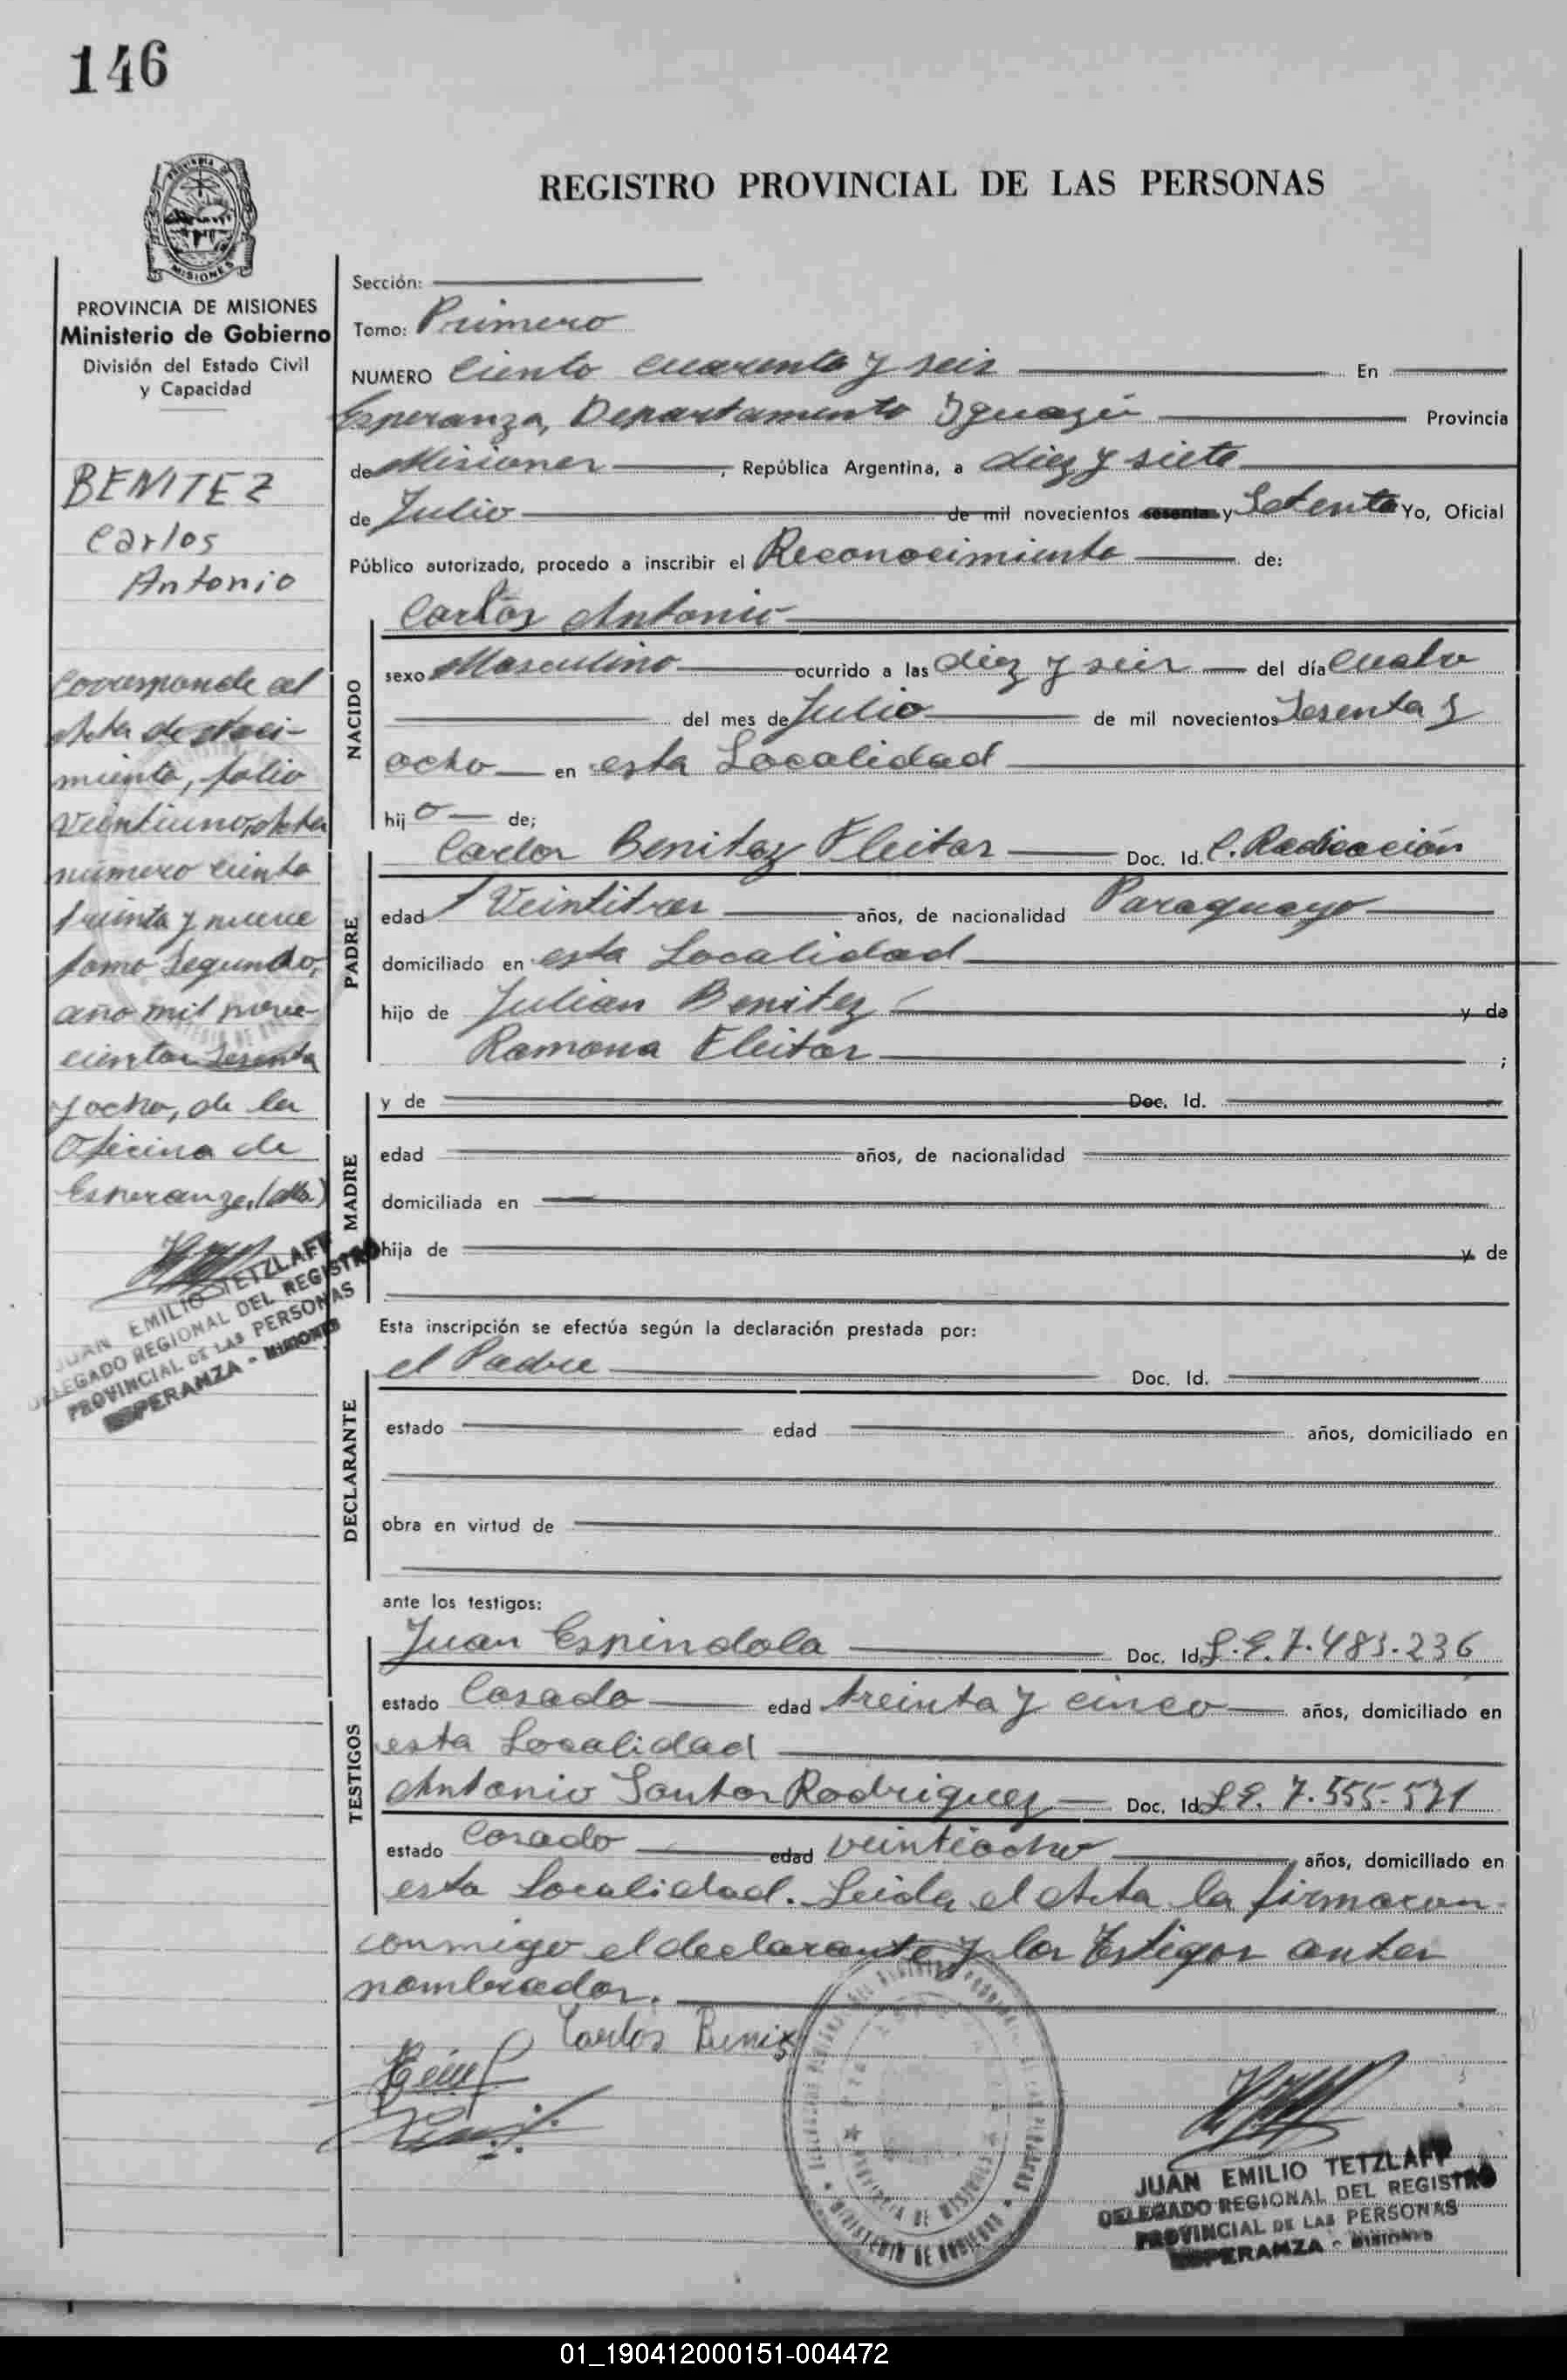 146
REGISTRO PROVINCIAL DE LAS PERSONAS
PROVINCIA DE MISIONES
Ministerio de Gobierno
División del Estado Civil
y Capacidad
BENITEZ
Carlos
Antonio
Corresponde al
Acta de Naci-
miento, folio
Veintiuno, Acta
número ciento
treinta y nueve
tomo Segundo,
año mil nove-
cientos Sesenta
y ocho, de la
Oficina de
Esperanza,
JUAN EMILIO TETZLAFF
DELEGADO REGIONAL DEL REGISTRO
PROVINCIAL DE LAS PERSONAS
ESPERANZA - MISIONES
Sección:
Tomo: Primero
NUMERO Ciento cuarenta y seis En
Esperanza, Departamento Iguazú Provincia
de Misiones, República Argentina, a diez y siete
de Julio de mil novecientos sesenta y Setenta Yo, Oficial
Público autorizado, procedo a inscribir el Reconocimiento de:
NACIDO
Carlos Antonio
sexo Masculino ocurrido a las diez y seis del día cuatro
del mes de Julio de mil novecientos Sesenta y
ocho en esta Localidad
hijo de;
PADRE
Carlos Benitez Fleitas Doc. Id. C. Radicación
edad Veintitres años, de nacionalidad Paraguayo
domiciliado en esta Localidad
hijo de Julian Benitez y de
Ramona Fleitas ;
MADRE
y de Doc. Id.
edad años, de nacionalidad
domiciliada en
hija de y de
Esta inscripción se efectúa según la declaración prestada por:
DECLARANTE
el Padre Doc. Id.
estado edad años, domiciliado en
obra en virtud de
ante los testigos:
TESTIGOS
Juan Espindola Doc. Id. L.E. 7.483.236
estado Casado edad treinta y cinco años, domiciliado en
esta Localidad
Antonio Santos Rodriguez Doc. Id. L.E. 7.555.571
estado Casado edad veintiocho años, domiciliado en
esta Localidad. Leida el Acta la firmaron
conmigo el declarante y los Testigos antes
nombrados.
Carlos Beniz
PROVINCIA DE MISIONES
MINISTERIO DE GOBIERNO
JUAN EMILIO TETZLAFF
DELEGADO REGIONAL DEL REGISTRO
PROVINCIAL DE LAS PERSONAS
ESPERANZA - MISIONES
01_190412000151-004472